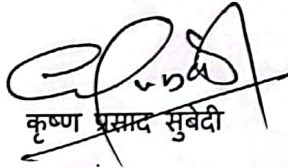 कृष्ण प्रसाद सुबेदी